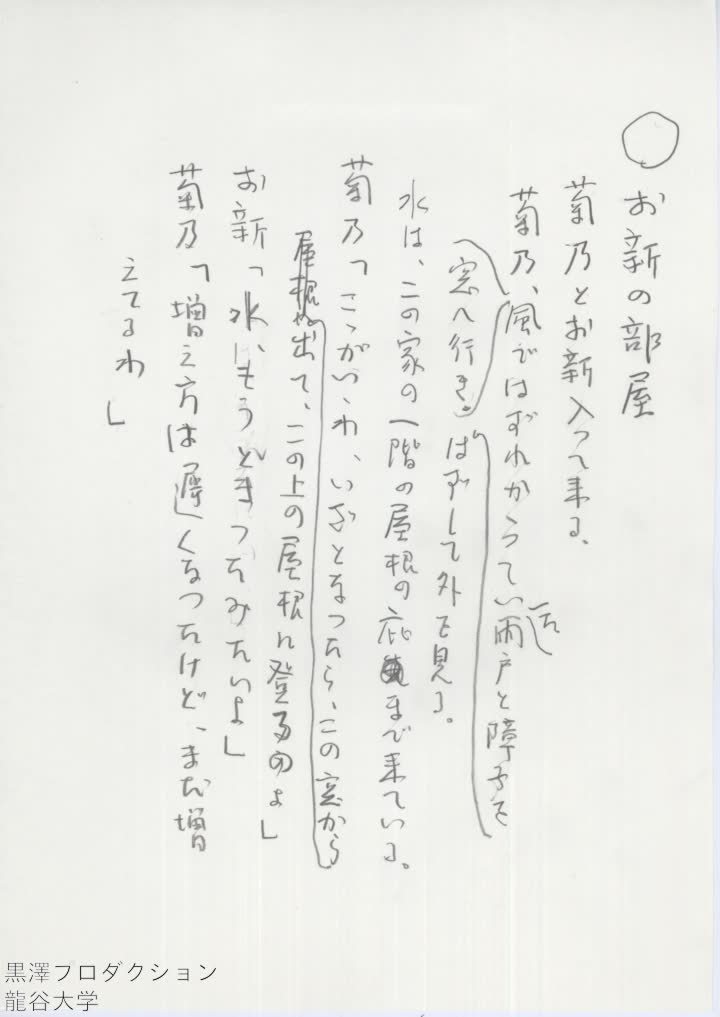 ○ お新の部屋
菊乃とお新入って来る、
菊乃、風ではずれかかっている雨戸と障子を
(窓へ行き、)はずして外を見る。
水は、この家の一階の屋根の庇まで来ている。
菊乃「こゝがいゝわ、いざとなったら、この窓から
屋根へ出て、この上の屋根に登るのよ」
お新「水はもうどまったみたいよ」
菊乃「増え方は遅くなったけど、まだ増
えてるわ」
黒澤プロダクション
龍谷大学